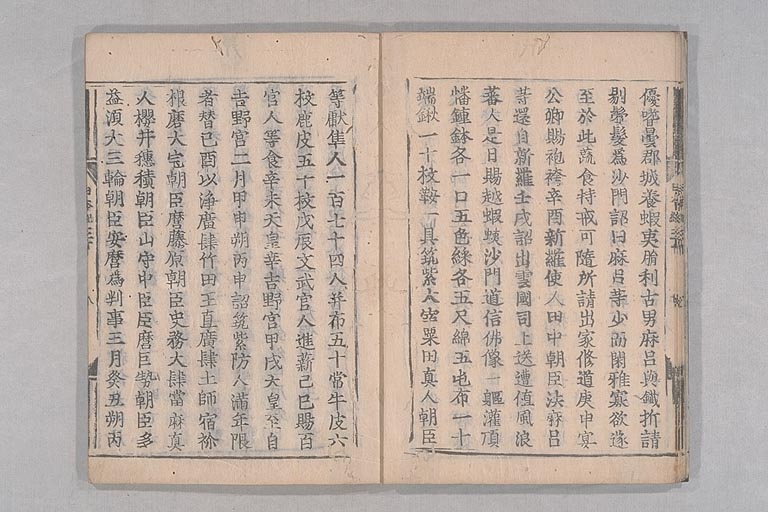 優嗜曇郡城養蝦夷脂利古男麻呂與鐵折請
剔鬢髮爲沙門詔曰麻呂等少而閑雅寡欲遂
至於此蔬食持戒可隨所請出家修道庚申宴
公卿賜袍袴辛酉新羅使人田中朝臣法麻呂
等還自新羅壬戌詔出雲國司上送遭值風浪
蕃人是日賜越蝦蛦沙門道信佛像一軀灌頂
幡鍾鉢各一口五色綵各五尺綿五屯布一十
端鍬一十枚鞍一具筑紫大宰粟田真人朝臣
等獻隼人一百七十四人并布五十常牛皮六
枚鹿皮五十枚戊辰文武官人進薪己巳賜百
官人等食辛未天皇幸吉野宮甲戌天皇至自
吉野宮二月甲申朔丙申詔筑紫防人滿年限
者替己酉以淨廣肆竹田王直廣肆土師宿祢
根麿大宅朝臣麿藤原朝臣史務大肆當麻真
人櫻井穗積朝臣山守中臣臣麿巨勢朝臣多
益湏大三輪朝臣安麿爲判事三月癸丑朔丙